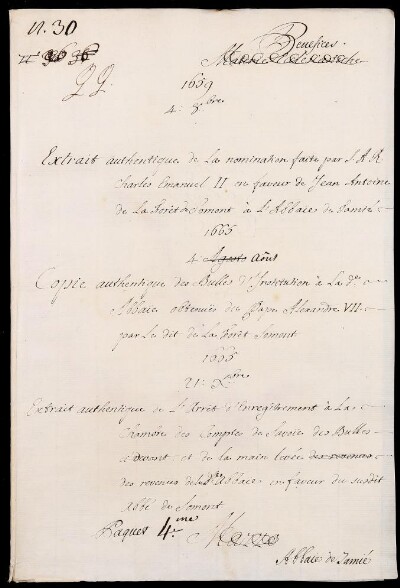 n. 30
Benefices.
n 36 36
QQ.
1659
4. 8bre
Extrait authentique de La nomination faite par S A R
Charles Emanuel II, en faveur de Jean Antoine
de La Forêt de Somont à L'Abbaïe de Tamié
1665
4 Agosto Août
Copie authentique des Bulles d'Institution à La de
Abbaïe obtenuës du Pape Alexandre VII
par Le dit de La Forêt Somont
1666
21. Xbre
Extrait authentique de L'Arrêt d'Enregîtrement à La
Chambre des Comptes de Savoie des Bulles
ci devant et de la main levée des revenus
des revenus de lade Abbaïe en faveur du susdit
Abbé de Somont
Paques 4.me
Abbaïe de Tamié